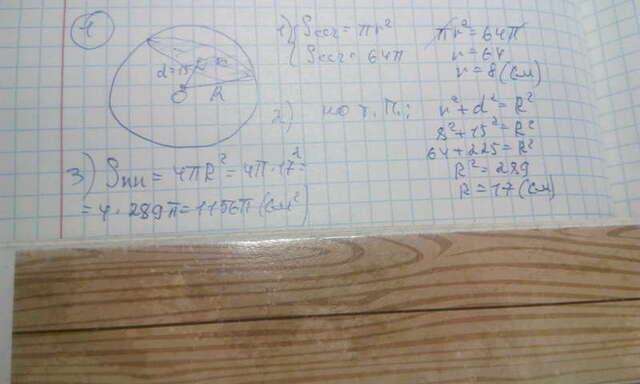 1
d=15 r
O R
1) { Sсеч = πr²
Sсеч = 64π
πr² = 64π
r = 64
r = 8 (см)
2) по т. П.: r² + d² = R²
8² + 15² = R²
64 + 225 = R²
R² = 289
R = 17 (см)
3) Sпш = 4πR² = 4π · 17² =
= 4 · 289π = 1156π (см²)